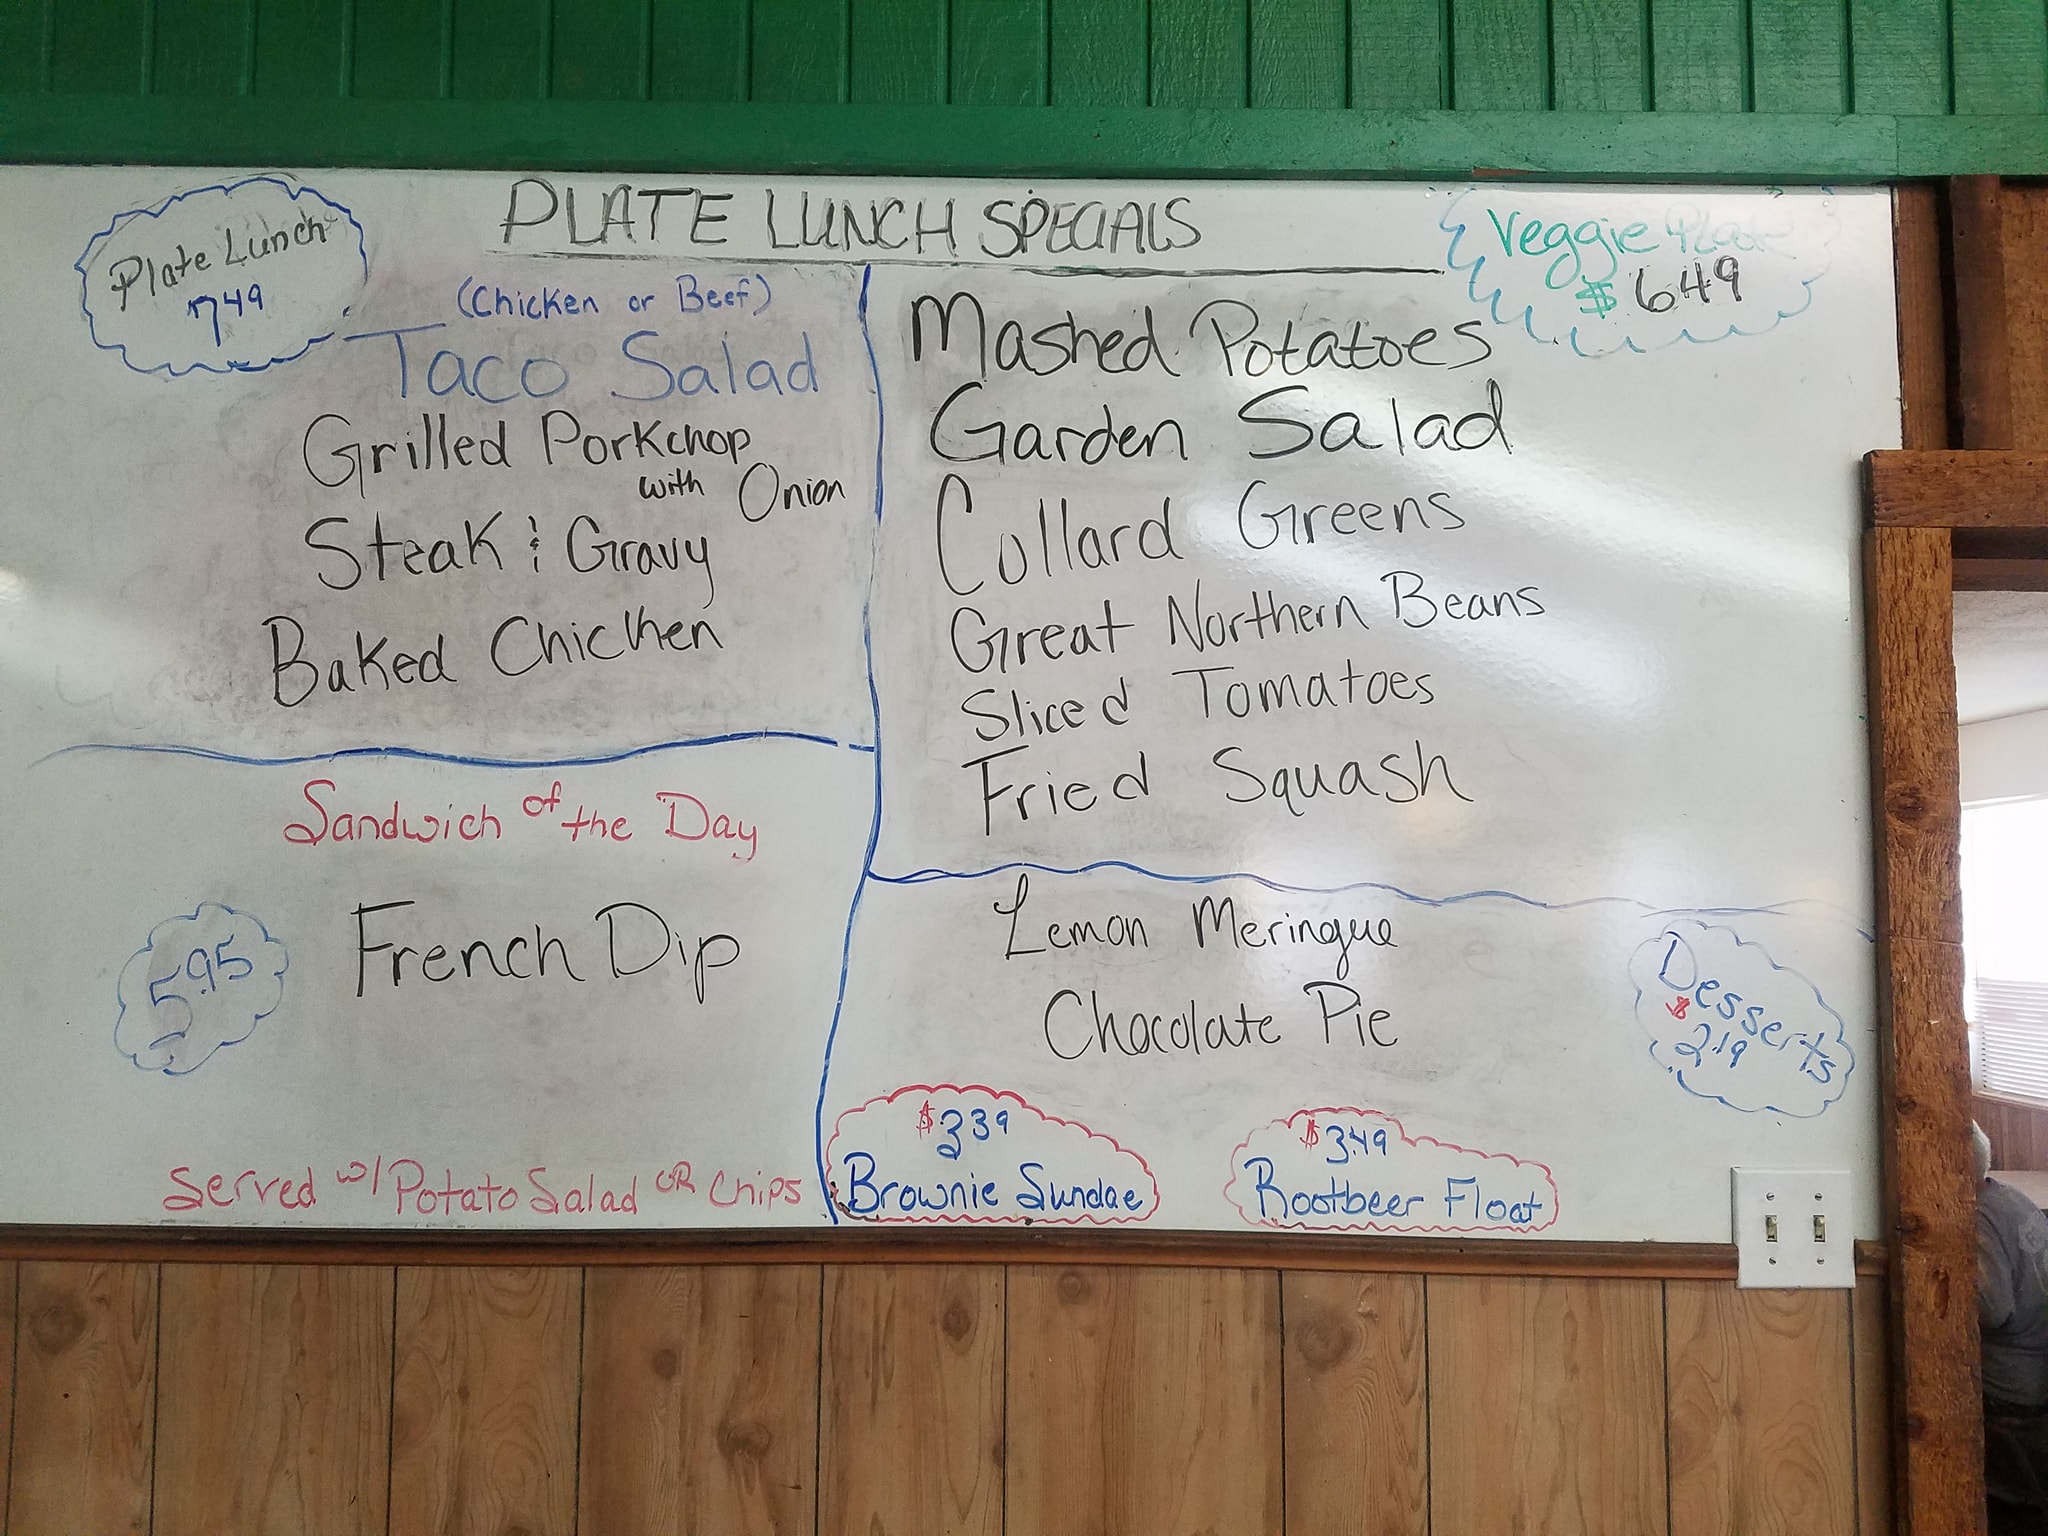 PLATE LUNCH SPECIALS
Plate Lunch
7.49
(Chicken or Beef)
Taco Salad
Grilled Porkchop
with Onion
Steak & Gravy
Baked Chicken
Veggie Plate
$ 6.49
Mashed Potatoes
Garden Salad
Collard Greens
Great Northern Beans
Sliced Tomatoes
Fried Squash
Sandwich of the Day
5.95
French Dip
Served w/ Potato Salad OR Chips
Lemon Meringue
Chocolate Pie
Desserts
$
2.19
$3.39
Brownie Sundae
$3.49
Rootbeer Float